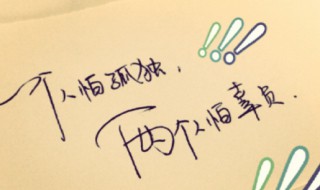 一个人怕孤独，
两个人怕辜负.